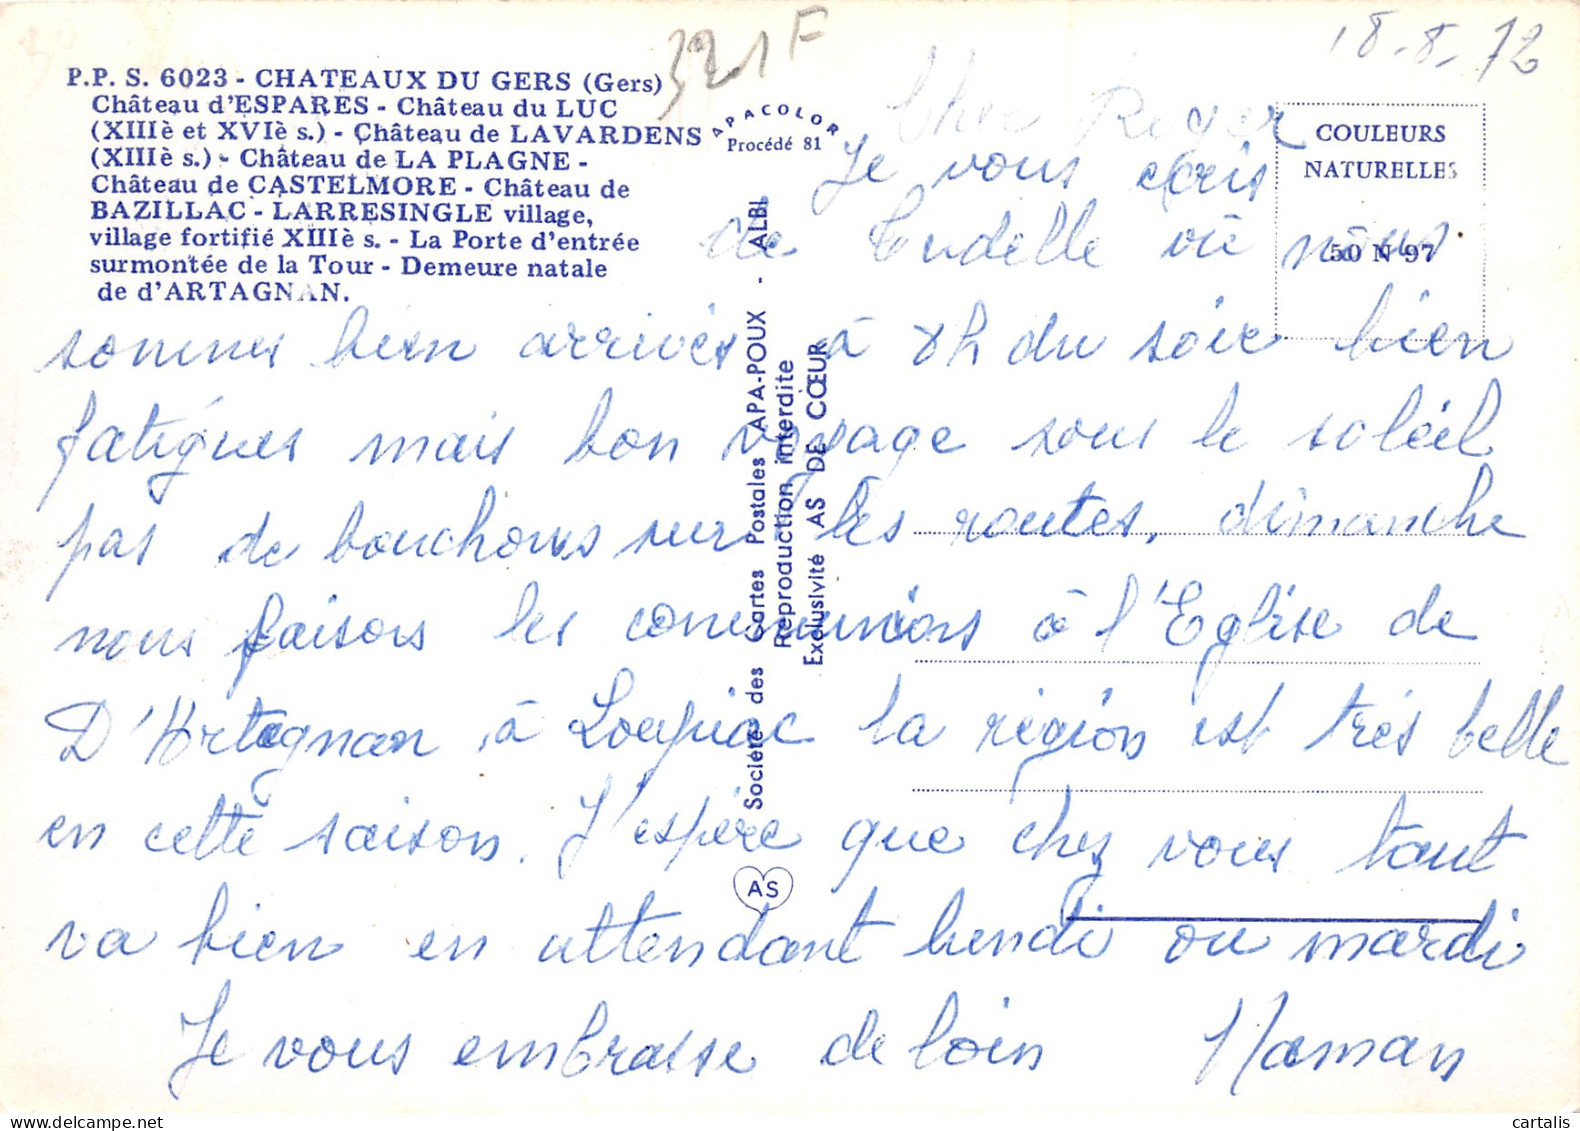 18-8-72
321F
P.P. S. 6023 - CHATEAUX DU GERS (Gers)
Château d'ESPARES - Château du LUC
(XIIIè et XVIè s.) - Château de LAVARDENS
(XIIIè s.) - Château de LA PLAGNE -
Château de CASTELMORE - Château de
BAZILLAC - LARRESINGLE village,
village fortifié XIIIè s. - La Porte d'entrée
surmontée de la Tour - Demeure natale
de d'ARTAGNAN.
APACOLOR
Procédé 81
COULEURS
NATURELLES
50 N 97
Société des Cartes Postales APA-POUX - ALBI
Reproduction interdite
Exclusivité AS DE CŒUR
AS
Cher Roger
Je vous écris
de où nous
sommes bien arrivés à 8h du soir bien
fatigués mais bon voyage sous le soleil
pas de bouchons sur les routes, dimanche
nous faisons les communions à l'Eglise de
D'Artagnan à Loupiac la région est très belle
en cette saison. J'espère que chez vous tout
va bien en attendant lundi ou mardi
Je vous embrasse de loin Maman
cartalis